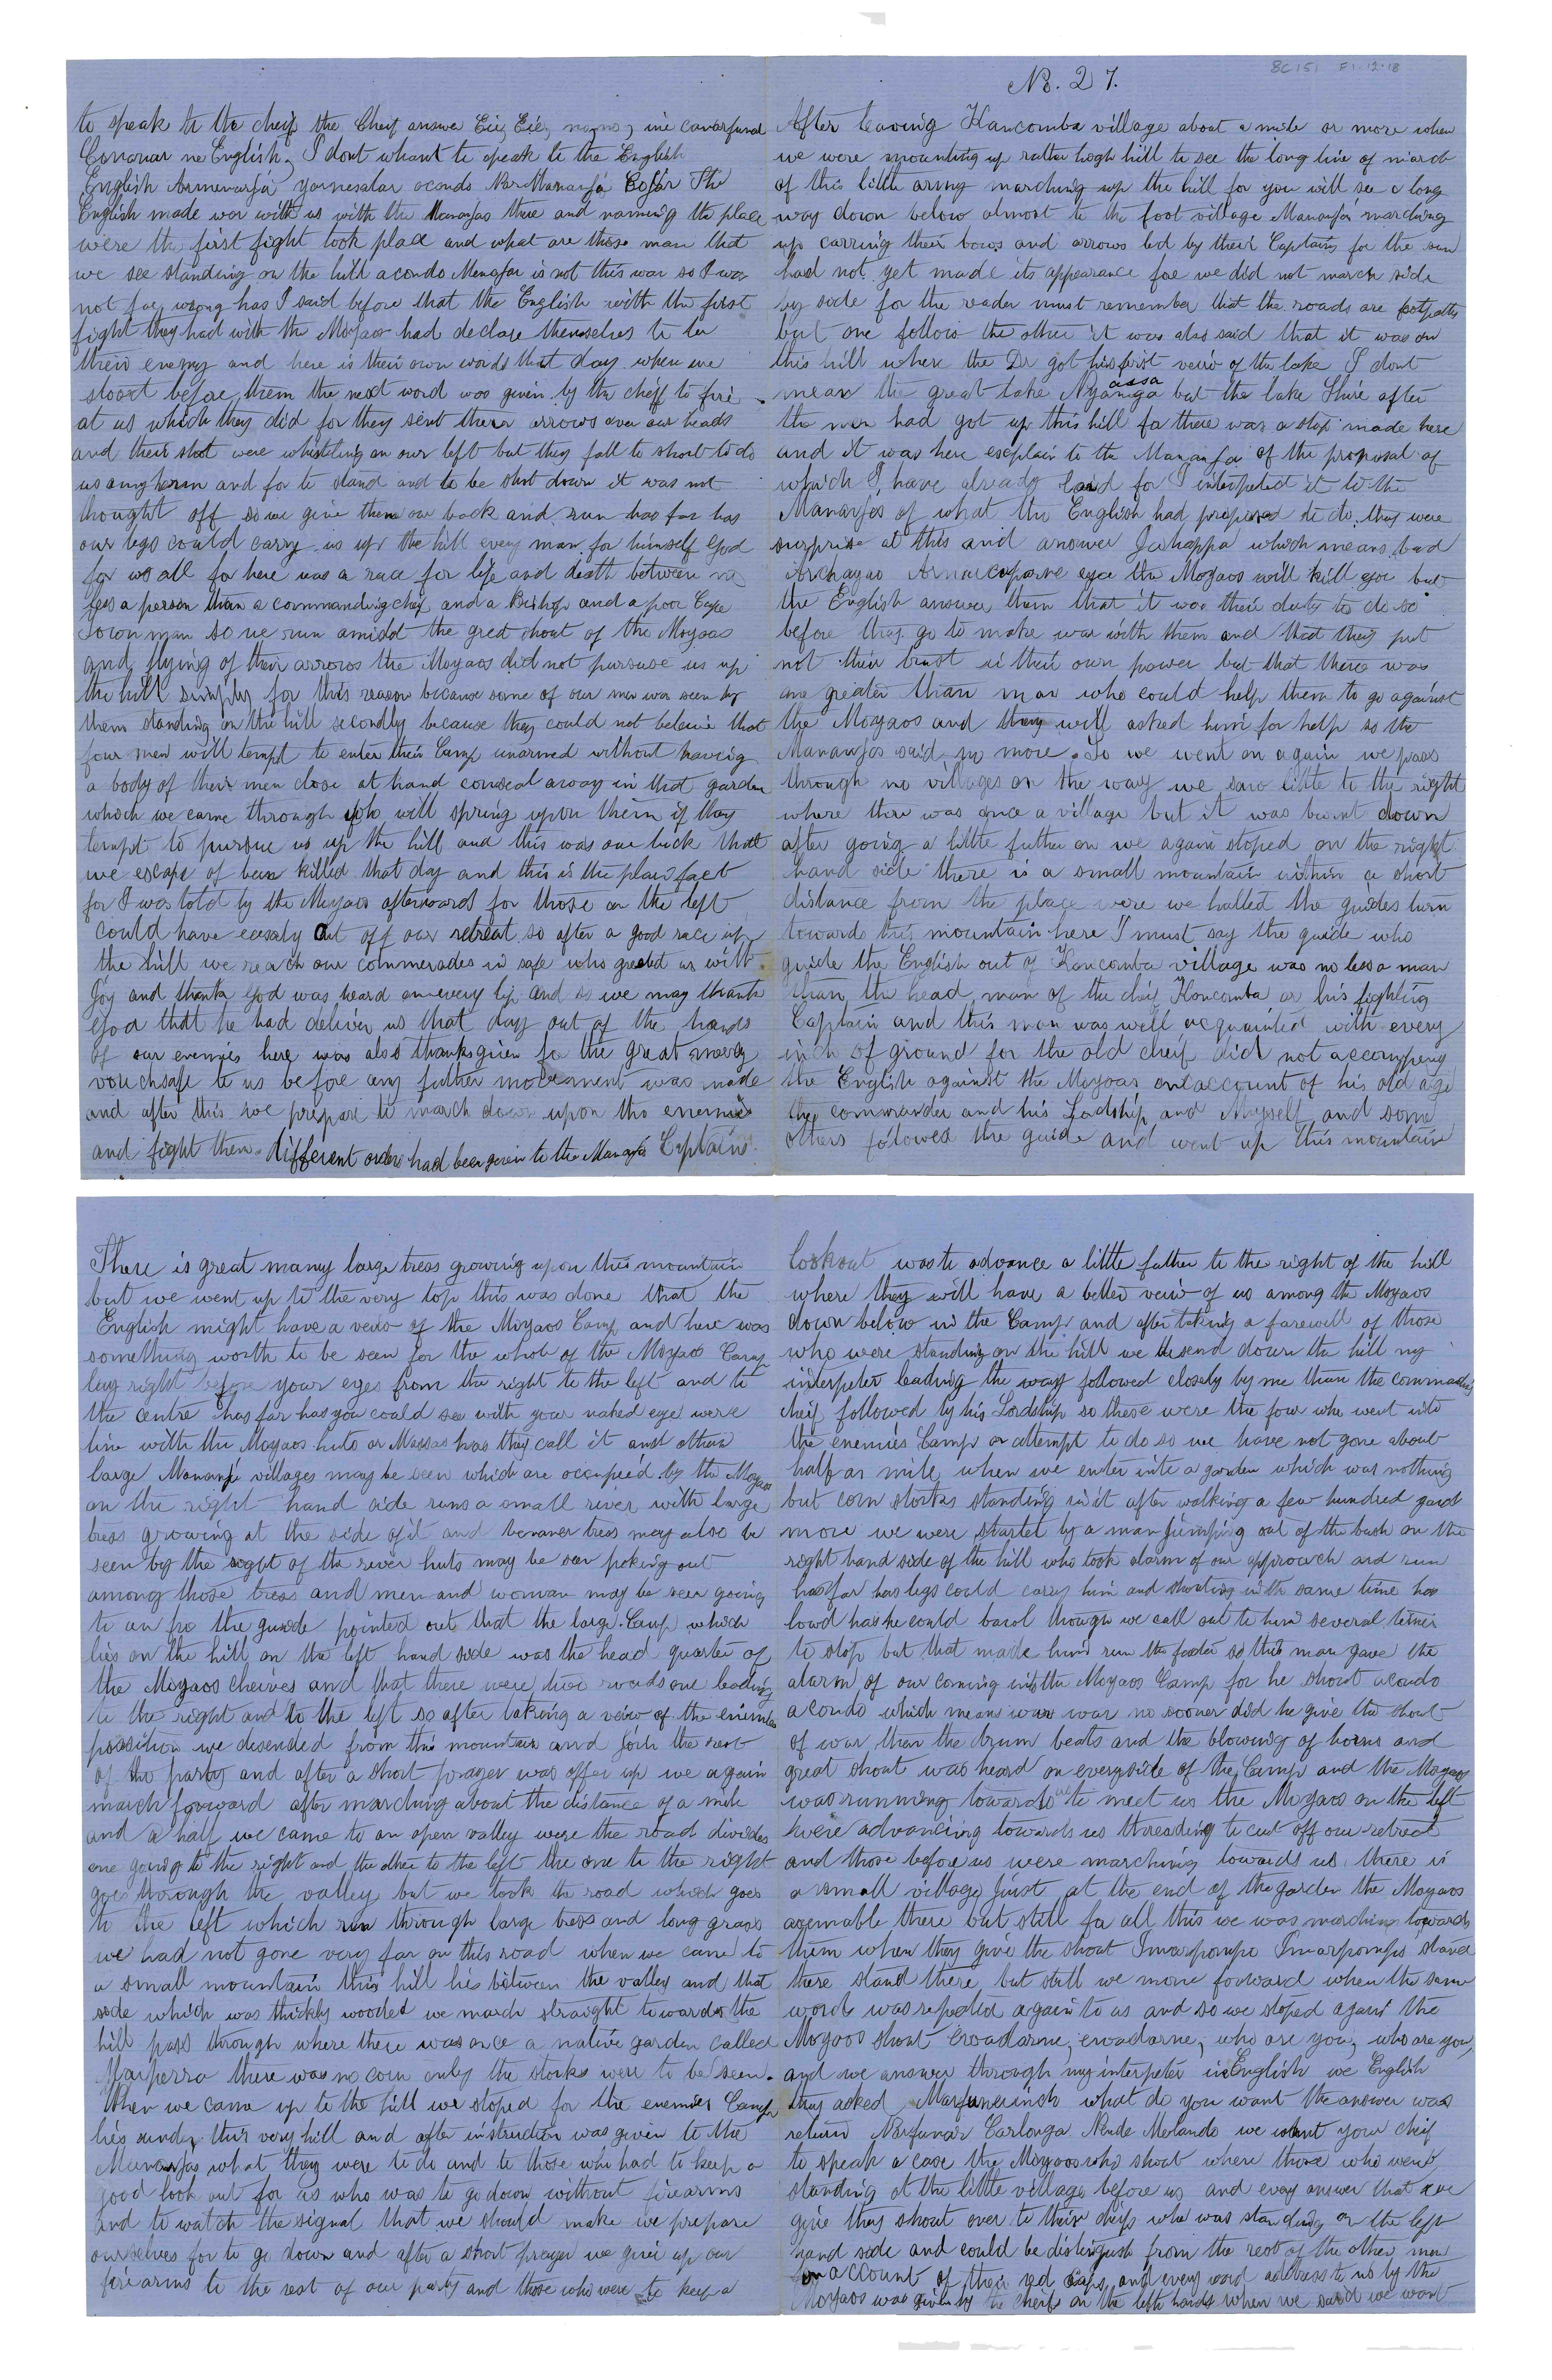 BC151 F1.12.18
No. 27.
After leaving Kancomba village about a mile or more when
we were mounting up rather hogh hill to see the long line of march
of this little army marching up the hill for you will see a long
way down below almost to the foot village Mananja marching
up carring their bows and arrows led by their Captains for the sun
had not yet made its appearance for we did not march side
by side for the reader must remember that the roads are footpaths
but one follow the other it was also said that it was on
this hill where the Dr got his first veiw of the lake I dont
mean the great lake Nyanga assa but the lake Shire after
the men had got up this hill for there was a stop made here
and it was here esplain to the Mananja of the proposal of
which I have already said for I interpeted it to the
Mananjas of what the English had proposed to do they were
surprise at this and answer Jahappa which means bad
Archayao Arnaicoparne eya the Moyaos will kill you but
the English answer them that it was their duty to do so
before they go to make war with them and that they put
not their trust in their own power but that there was
one greater than man who could help them to go against
the Moyaos and they will asked him for help so the
Mananjas said no more. So we went on again we pass
through no villages on the way we saw little to the right
where there was once a village but it was burnt down
after going a little futher on we again stoped on the right
hand side there is a small mountain within a short
distance from the place were we halted the guides turn
towards this mountain here I must say the guide who
guide the English out of Kancomba village was no less a man
than the head man of the cheif Koncomba or his fighting
Captain and this man was well acquainted with every
inch of ground for the old cheif did not accompeny
the English against the Moyoas onaccount of his old age
the commander and his Lordship and Myself and some
others followed the guide and went up this mountain
There is great many large tress growing upon this mountain
but we went up to the very top this was done that the
English might have a veiw of the Moyaos Camp and here was
something worth to be seen for the whole of the Moyaos Camp
lay right before your eyes from the right to the left and to
the centre has far has you could see with your naked eye were
line with the Moyaos huts or Massas has they call it and others
large Mananja villages may be seen which are occupied by the Moyaos
on the right hand side runs a small river with large
tress growing at the side of it and bananer tress may also be
seen by the sight of the river huts may be seen poking out
among those tress and men and woman may be seen going
to an fro the guide pointed out that the large Camp which
lies on the hill on the left hand side was the head quarter of
the Moyaos cheives and that there were two roads one leading
to the right and to the left so after taking a veiw of the enimies
possition we desended from this mountain and join the rest
of the party and after a short prayer was offer up we again
march forward after marching about the distance of a mile
and a half we came to an open valley were the road divides
one going to the right and the other to the left the one to the right
goes through the valley but we took the road which goes
to the left which run through large tress and long grass
we had not gone very far on this road when we came to
a small mountain this hill lies between the valley and that
side which was thickly wooded we march straught towards the
hill pass through where there was once a native garden called
Marperra there was no corn only the storks were to be seen.
When we came up to the hill we stoped for the enemies Camp
lies under this very hill and after instruction was given to the
Mananjas what they were to do and to those who had to keep a
good look out for us who was to go down without firearms
and to watch the signal that we should make we prepare
ourselves for to go down and after a short prayer we give up our
fire arms to the rest of our party and those who were to keep a
lookout was to advance a little futher to the right of the hill
where they will have a better veiw of us among the Moyaos
down below in the Camp and after taking a farewell of those
who were standing on the hill we desend down the hill my
interpeter leading the way followed closely by me then the commanding
cheif followed by his Lordship so these were the four who went into
the enemies Camp or attempt to do so we have not gone about
half a mile when we enter into a garden which was nothing
but corn storkes standing in it after walking a few hundred yard
more we were startet by a man jumping out of the bush on the
right hand side of the hill who took alarm of our approach and run
has far has legs could carry him and shouting with same time has
loud has he could bawl though we call out to him several times
to stop but that made him run the faster so this man gave the
alarm of our coming into the Moyaos Camp for he shout acondo
acondo which mean war war no sooner did he give the shout
of war than the drum beats and the blowing of horns and
great shout was heard on everyside of the Camp and the Moyaos
was running towards us to meet us the Moyaos on the left
were advancing towards us threading to cut off our retreat
and those before us were marching towards us there is
a small village just at the end of the garden the Moyaos
asemable there but still for all this we was marching towards
them when they give the shout Imarpompo Imarpompo stand
there stand there but still we move forward when the same
words was repeated again to us and so we stoped again the
Moyaos shout ewadarne, ewadarne, who are you, who are you,
and we answer through my interpeter in English we English
they asked Marfuneinsh what do you want the answer was
return Narfunar Carlonga Nende Merlando we want your cheif
to speak a case the Moyaos who shout where those who were
standing at the little village before us and evry answer that we
give they shout over to their cheifs who was standing on the left
hand side and could be distinguish from the rest of the other men
on account of their red caps and every word address to us by the
Moyaos was given by the cheifs on the left hands when we said we want
to speak to the cheif the Cheif answer Eiy Eiey nayno, ine canarfunal
Conanar ne English, I dont whant to speak to the English
English Armenarja yarnesalar oconds Nar Mananja Cofar The
English made war with us with the Mananjas there and naming the place
were the first fight took place and what are those man that
we see standing on the hill acondo Menafar is not this war so I was
not far wrong has I said before that the English with the first
fight they had with the Moyaos had declare themselves to be
their enemy and here is their own words that day when we
stoort before them the next word was given by the cheif to fire
at us which they did for they sent there arrows over our heads
and their shot were whistling on our left but they fall to short to do
us any harm and for to stand and to be shot down it was not
thought off so we give them our back and run has far has
our legs could carry us up the hill every man for himself God
for us all for here was a race for life and death between no
less a person than a commanding cheif and a Bishop and a poor Cape
Town man so we run amidst the gret shout of the Moyaos
and flying of their arrows the Moyaos did not pursuse us up
the hill simply for this reason because some of our men was seen by
them standing on the hill secondly because they could not beleive that
four men will tempt to enter their Camp unarmed without having
a body of their men close at hand conseal away in that garden
which we came through who will spring upon them if they
tempt to pursue us up the hill and this was our luck that
we escape of been killed that day and this is the plain fact
for I was told by the Moyaos afterwards for those on the left
could have easealy cut off our retreat so after a good race up
the hill we reach our commerades in safe who greated us with
joy and thank God was heard on every lip and so we may thank
God that he had deliver us that day out of the hands
of our enemies here was also thanksgiven for the great mercy
vouchsafe to us before any futher movement was made
and after this we prepare to march down upon the enemies
and fight them. different orders had been given to the Mananja Captains.